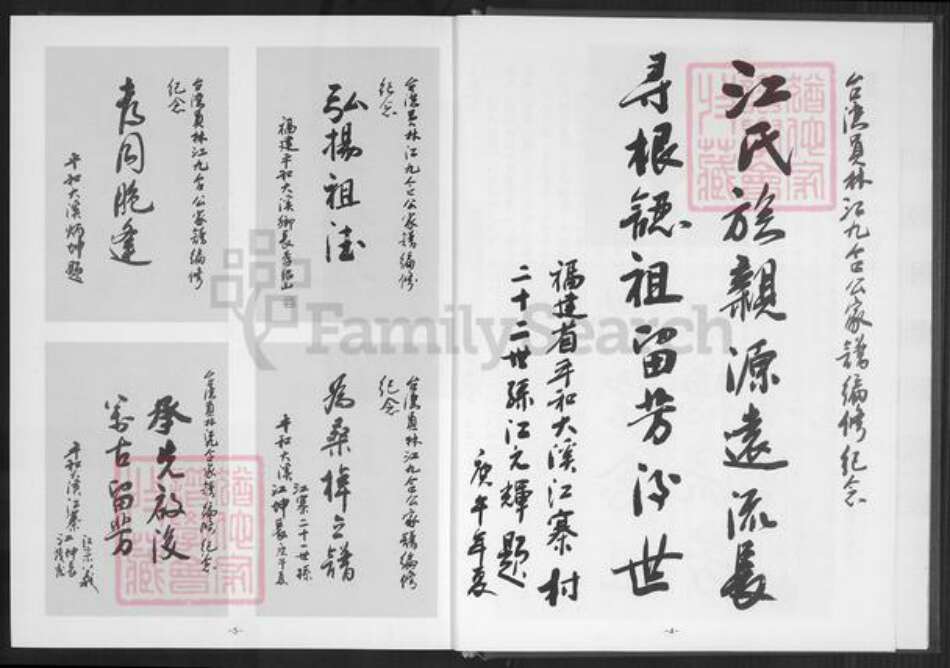 台灣員林江九合公家譜編修紀念
江氏族親源遠流長
尋根認祖留芳後世
福建省平和大溪江寨村
二十二世孫江元輝題
庚午年夏
-4-
台灣員林江九合公家譜編修
紀念
弘揚祖德
福建平和大溪鄉長
台灣員林江九合公家譜編修
紀念
平和大溪炳坤題
台灣員林江九合公家譜編修
紀念
為桑梓立譜
江寨二十一世孫
平和大溪江坤
承先啟後
萬古留芳
平和大溪江寨
-5-
FamilySearch